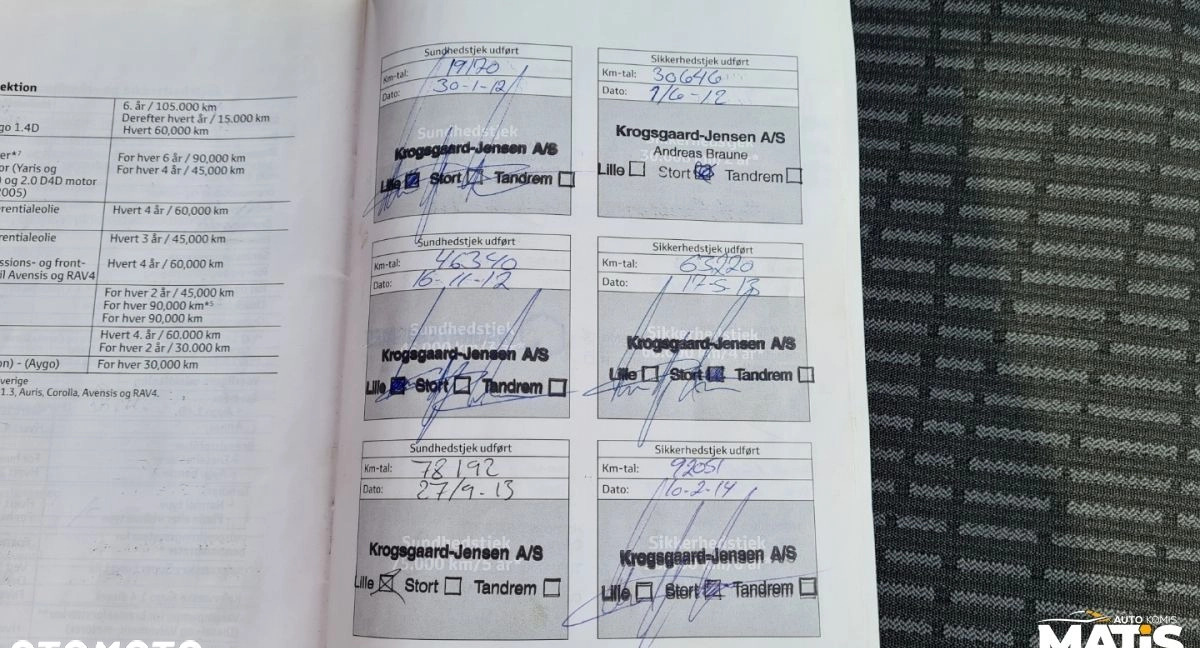 ektion
6. år / 105.000 km
Derefter hvert år / 15.000 km
go 1.4D
Hvert 60,000 km
er*7
For hver 6 år / 90,000 km
or (Yaris og
For hver 4 år / 45,000 km
) og 2.0 D4D motor
2005)
erentialeolie
Hvert 4 år / 60,000 km
erentialeolie
Hvert 3 år / 45,000 km
ssions- og front-
Hvert 4 år / 60,000 km
il Avensis og RAV4
For hver 2 år / 45,000 km
For hver 90,000 km*5
For hver 90,000 km
Hvert 4. år / 60.000 km
For hver 2 år / 30.000 km
on) - (Aygo)
For hver 30,000 km
verige
1.3, Auris, Corolla, Avensis og RAV4.
Sundhedstjek udført
Km-tal: 19170
Dato: 30-1-12
Sundhedstjek
Krogsgaard-Jensen A/S
Lille Stort Tandrem
Sikkerhedstjek udført
Km-tal: 30646
Dato: 1/6-12
Krogsgaard-Jensen A/S
Andreas Braune
Lille Stort Tandrem
Sundhedstjek udført
Km-tal: 46340
Dato: 16-11-12
Sundhedstjek
Krogsgaard-Jensen A/S
Lille Stort Tandrem
Sikkerhedstjek udført
Km-tal: 63220
Dato: 17-5-13
Sikkerhedstjek
Krogsgaard-Jensen A/S
Lille Stort Tandrem
Sundhedstjek udført
Km-tal: 78192
Dato: 27/9-13
Sundhedstjek
Krogsgaard-Jensen A/S
75.000 km/5 år*
Lille Stort Tandrem
Sikkerhedstjek udført
Km-tal: 92051
Dato: 10-2-14
Sikkerhedstjek
Krogsgaard-Jensen A/S
Lille Stort Tandrem
OTOMOTO
AUTO KOMIS
MATiS